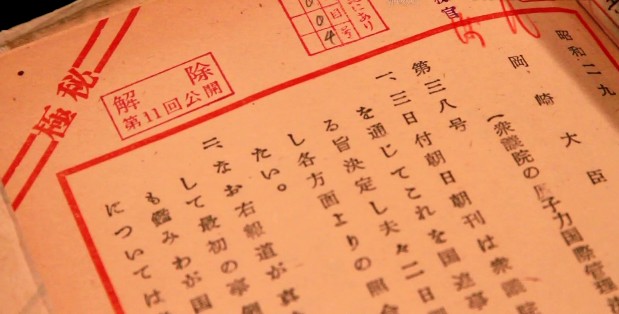 極秘
解除
第11回公開
昭和二九
岡崎大臣
(衆議院の 子力国際管理
第三八号
一、三日付朝日朝刊は衆議院
を通じてこれを国連事
る旨決定し夫々二日
し各方面よりの照会
たい。
二、なお右報道が真
して最初の事例
も鑑みわが国
については